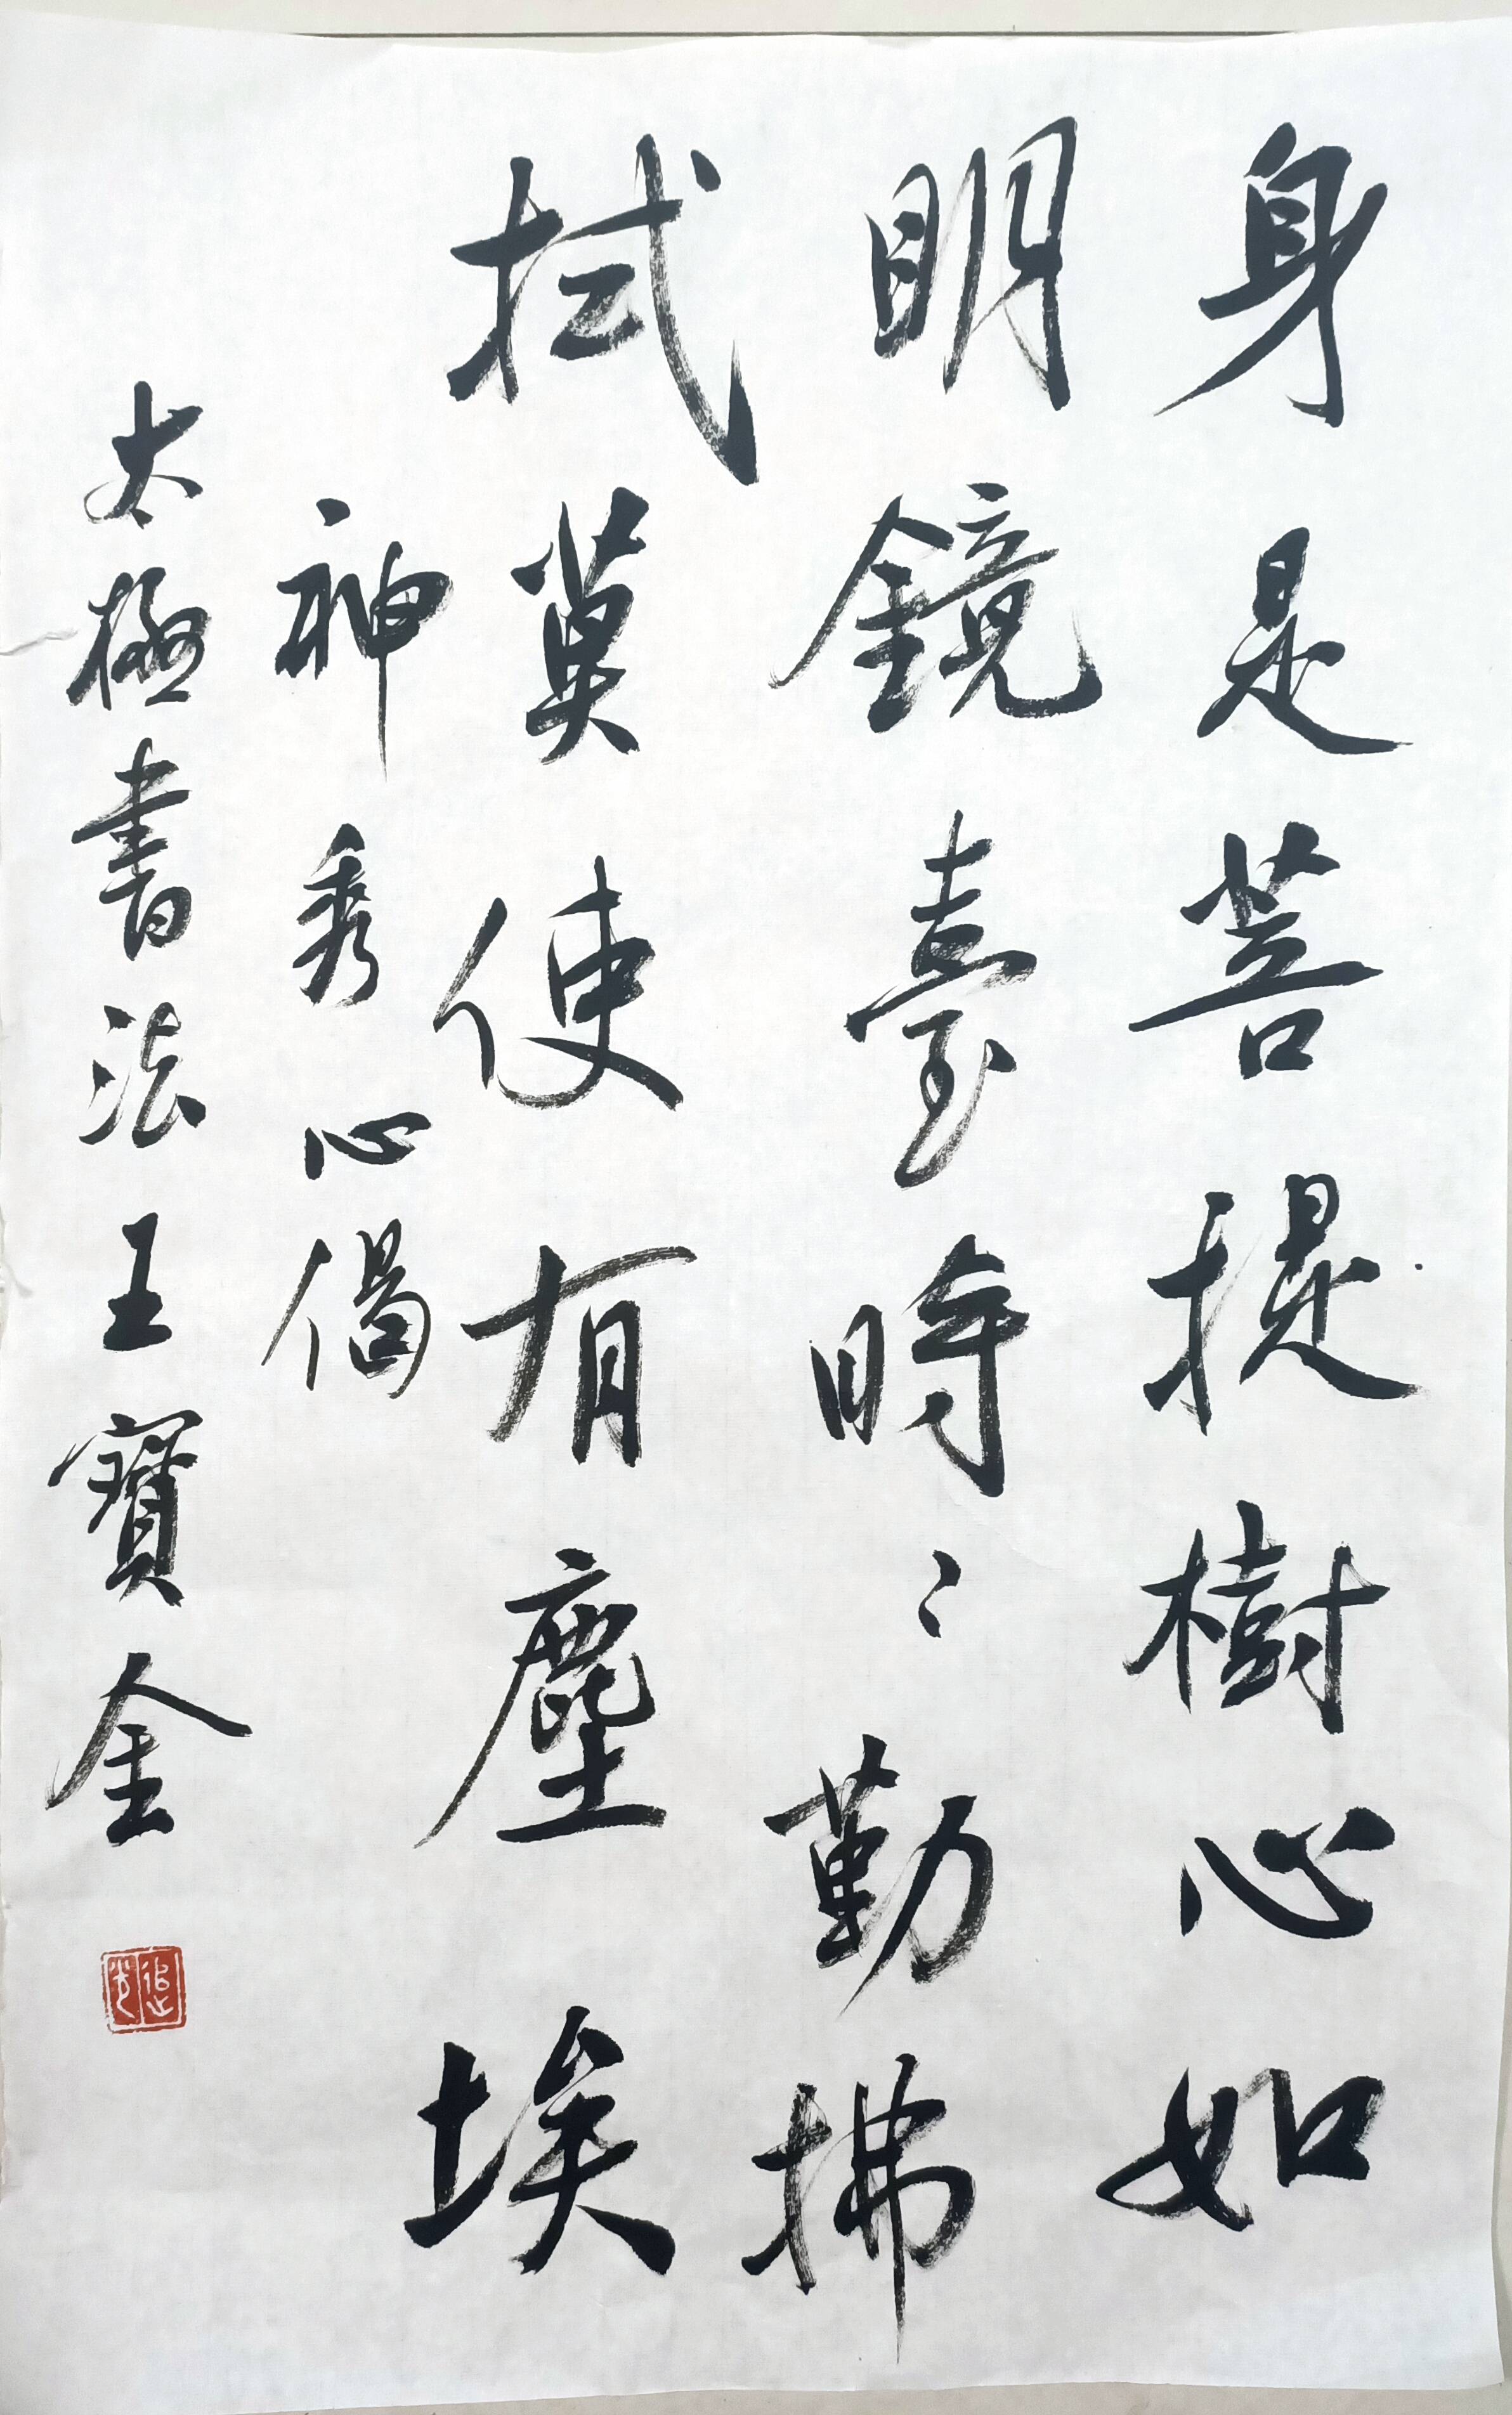 身是菩提樹心如
明鏡臺時〻勤拂
拭莫使有塵埃
神秀心偈
太極書法王寶金